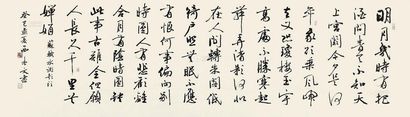 明月幾時有把
酒問青天不知天
上宮闕今夕是何
年我欲乘風歸
去又恐瓊樓玉宇
高處不勝寒起
舞弄清影何似
在人間轉朱閣低
綺戶照無眠不應
有恨何事偏向別
時圓人有悲歡離
合月有陰晴圓缺
此事古難全但願
人長久千里共
嬋娟 蘇軾水調歌頭